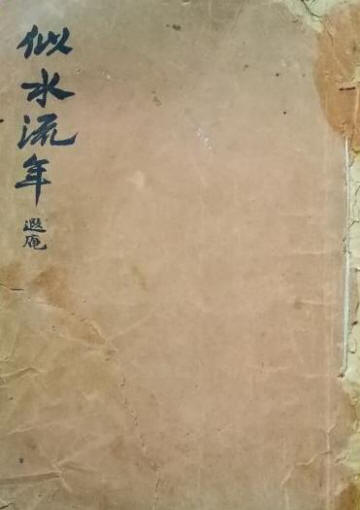 似水流年
遐庵